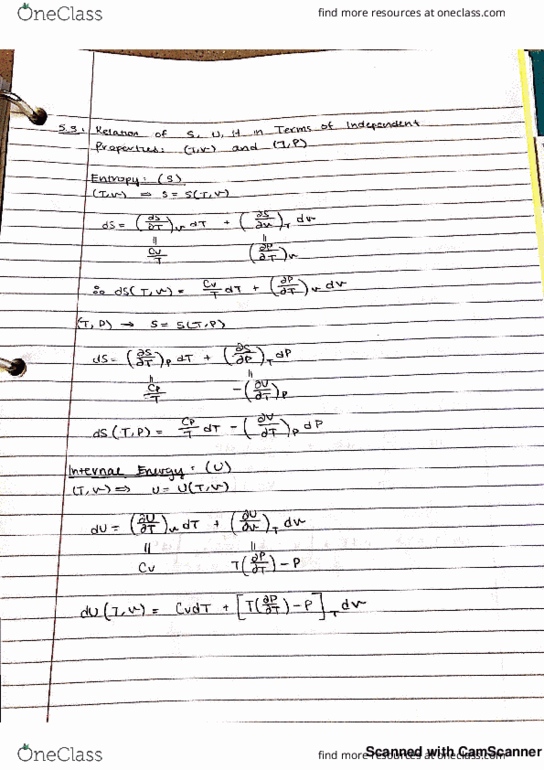 OneClass
find more resources at oneclass.com
5.3: Relation of S, U, H in Terms of Independent
Properties: (T,v) and (T,P)
Entropy: (S)
(T,v) ⟹ S = S(T,v)
dS = (∂S/∂T)_v dT + (∂S/∂v)_T dv
= =
Cv/T (∂P/∂T)_v
∴ dS(T,v) = Cv/T dT + (∂P/∂T)_v dv
(T, P) → S = S(T,P)
dS = (∂S/∂T)_P dT + (∂S/∂P)_T dP
= =
Cp/T -(∂V/∂T)_P
dS(T,P) = Cp/T dT - (∂V/∂T)_P dP
Internal Energy: (U)
(T,v) ⟹ U = U(T,v)
dU = (∂U/∂T)_v dT + (∂U/∂v)_T dv
= =
Cv T(∂P/∂T) - P
dU(T,v) = CvdT + [T(∂P/∂T) - P]_T dv
Scanned with CamScanner
OneClass
find more resources at oneclass.com